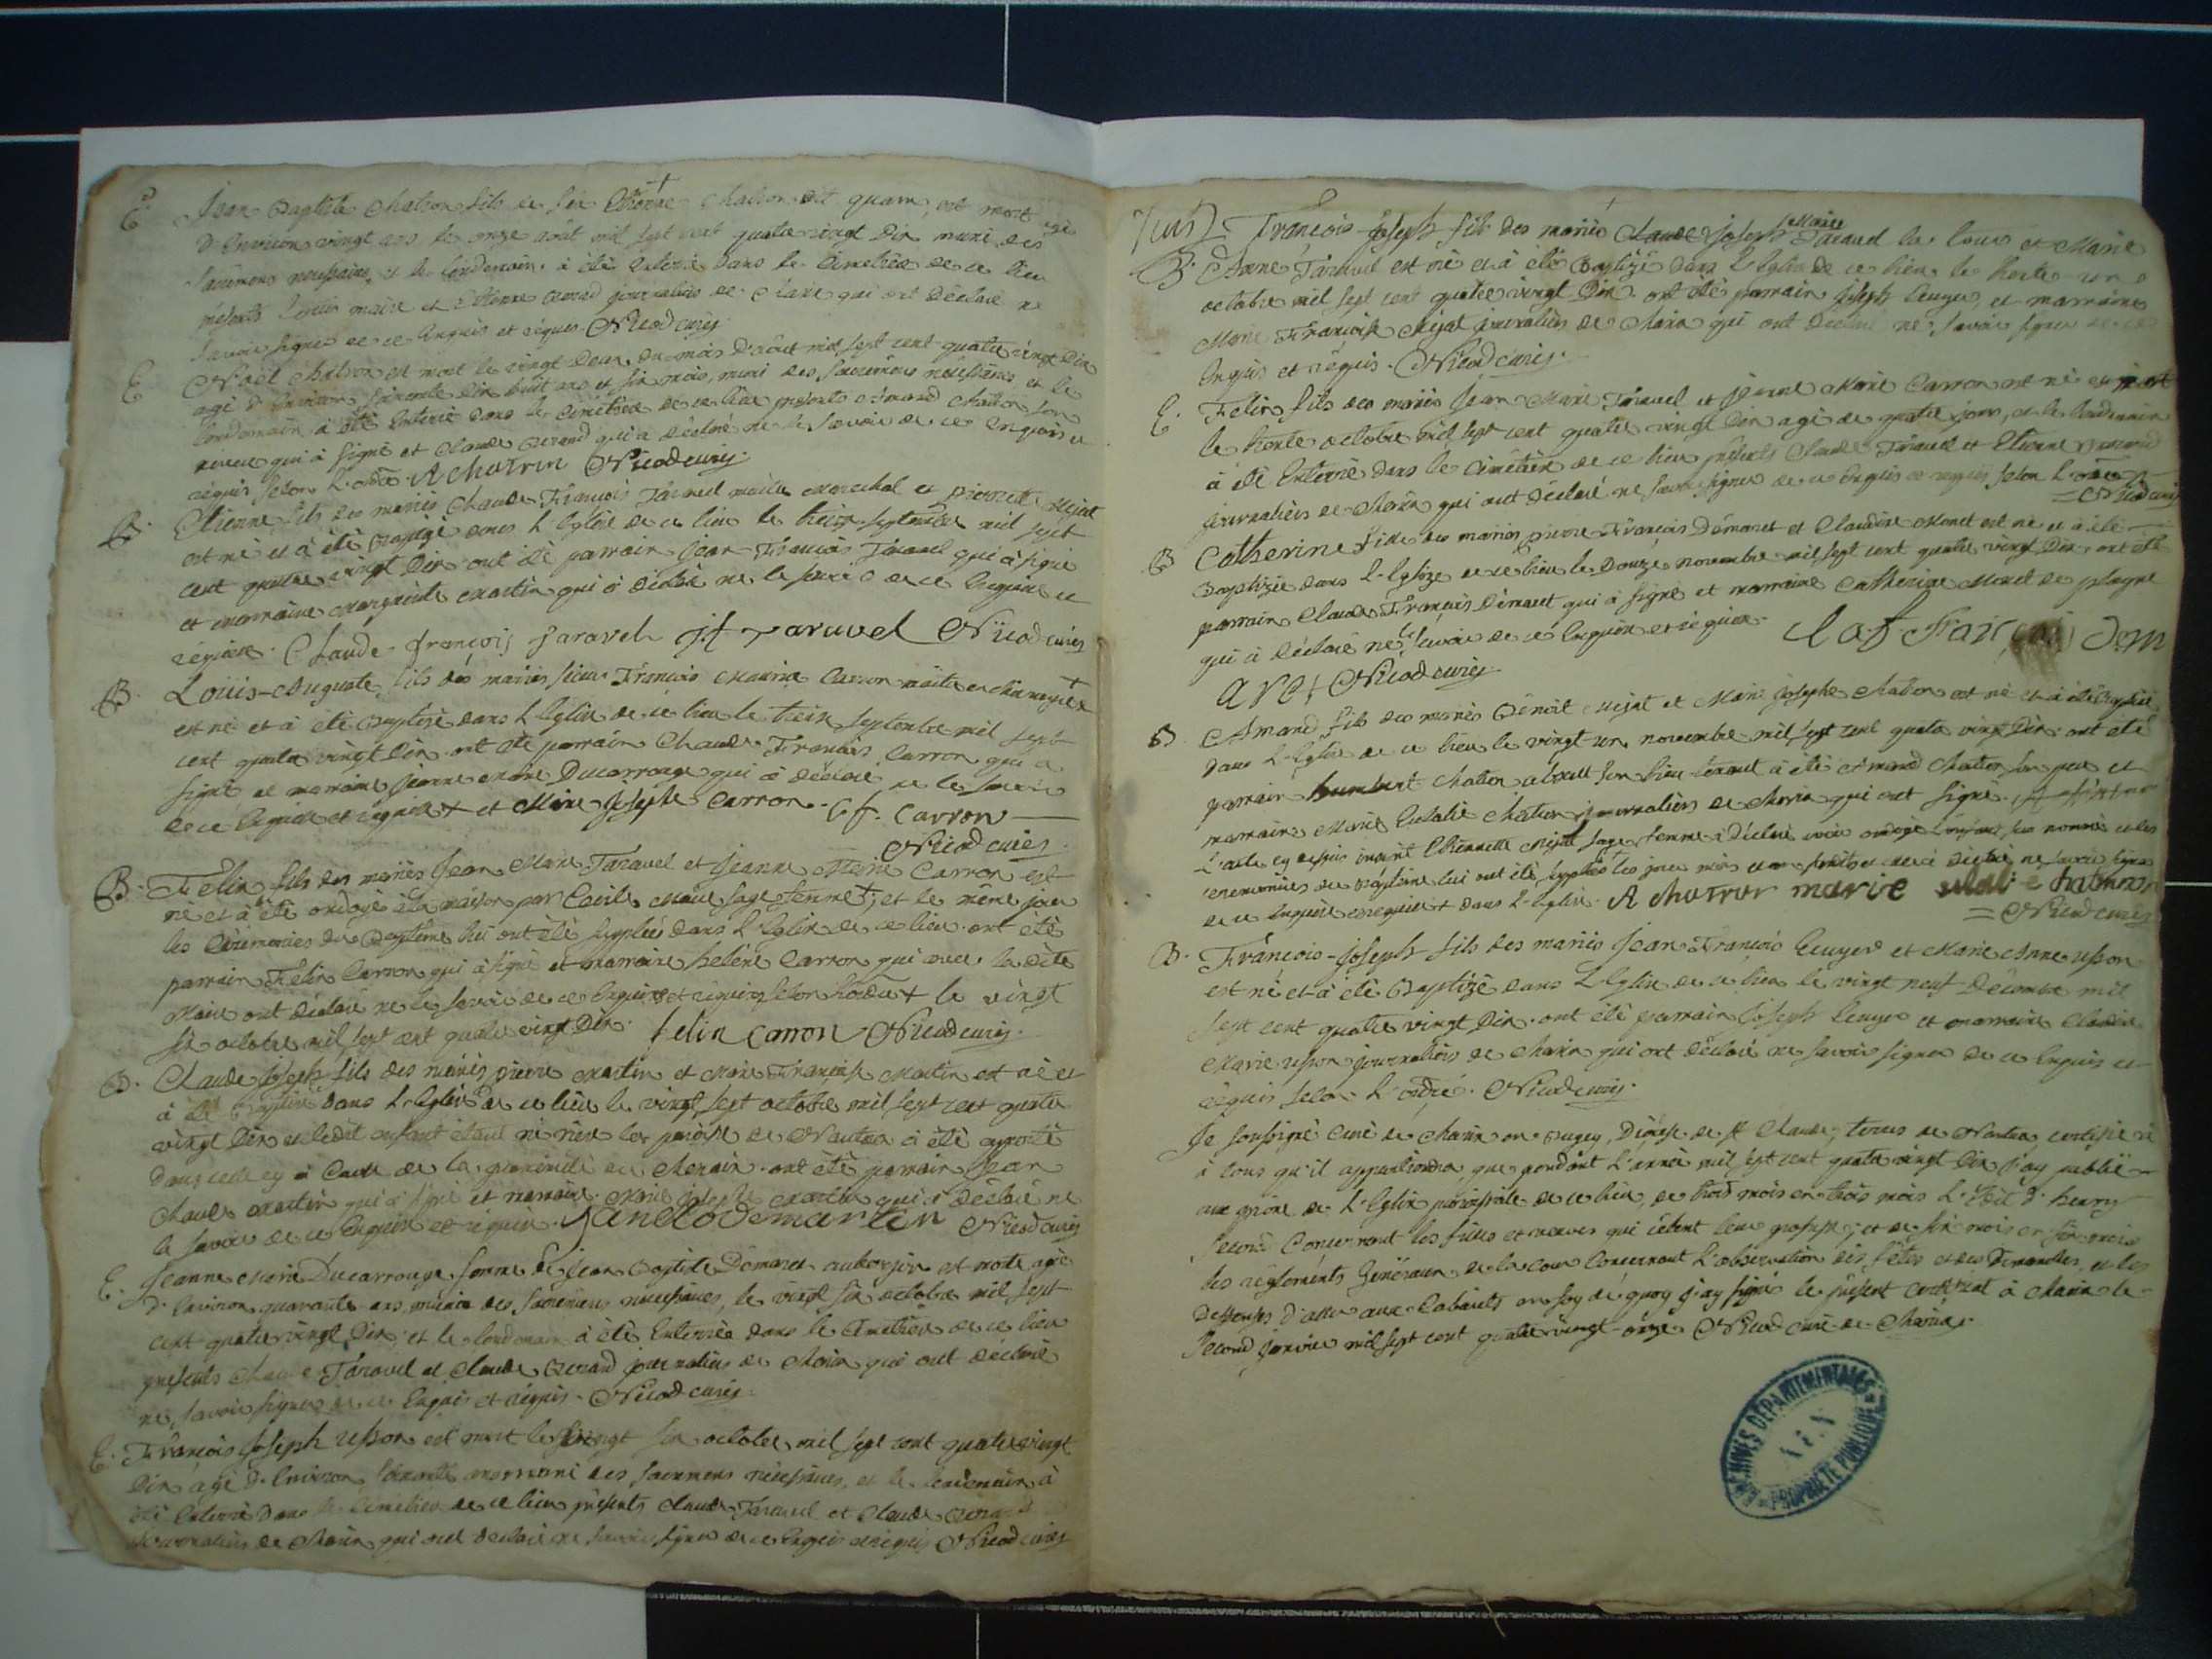 E. Jean Baptiste Chatron fils de feu Etienne Chatron dit quam, est mort agé
D'Environ vingt ans le onze août mil sept cent quatre vingt Dix muni des
sacremens necessaires, et le lendemain à été Enterré dans le Cimetière de ce lieu
présents Louis maire et Etienne Berend journaliers de Charix qui ont Déclaré ne
savoir signer de ce Enquis et réquis Nicod curé
E Noël Chatron est mort le vingt Deux du mois D'août mil sept cent quatre vingt Dix
agé d'Environ soixante Dix huit ans et six mois, muni des sacremens nécessaires et le
lendemain à été Enterré dans le Cimétière de ce lieu présents Amand Chatron son
neveu qui à signé et Claude Berend qui a déclaré ne le savoir de ce Enquis et
réquis selon l'ordre A Chatron Nicod curé
B. Etienne fils des mariés Claude François Taravel maitre marechal et pierrette Mejat
est né et à été Baptizé dans l'Eglise de ce lieu le treize septembre mil sept
cent quatre vingt Dix ont été parrain Jean François Taravel qui à signé
et marraine Marguerite Martin qui à déclaré ne le savoir de ce Enquise et
réquise. Claude françois taravel j.f taravel Nicod curé
B. Louis-Auguste, fils des mariés sieur François Marie Carron maitre en chirurgie +
est né et à été Baptisé dans l'Eglise de ce lieu le treize septembre mil sept
cent quatre vingt Dix ont été parrain Claude François Carron qui a
signé et marraine Jeanne Marie Ducarrouge qui à déclaré ne le savoir
de ce Enquise et requise + et Marie Josephe Carron. C.f. Carron
Nicod curé
B. Felix fils des mariés Jean Marie Taravel et Jeanne Marie Carron est
né et à été ondoyé à la maison par Cecile Maire sage femme +, et le même jour
les Cérémonies du Baptême lui ont été supplées dans l'Eglise de ce lieu ont été
parrain Felix Carron qui à signé et marraine helène Carron qui avec la dite
Maire ont déclaré ne le savoir de ce Enquises et réquises selon l'ordre + le vingt
six octobre mil sept cent quatre vingt Dix. felix carron Nicod curé
B. Claude Joseph fils des mariés pierre Martin et Marie Françoise Martin est né et
à été Baptisé dans l'Eglise de ce lieu le vingt sept octobre mil sept cent quatre
vingt Dix et ledit enfant étant né rière la paroisse de Nantua à été apporté
dans celle cy à Cause de la proximité du Chemin. ont été parrain Jean
Claude Martin qui à signé et marraine Marie Josephe Martin qui à Déclaré ne
le savoir de ce Enquise et réquise. jan clode martin Nicod curé
E. Jeanne Marie Ducarrouge femme de Jean Baptiste Démaret aubergiste est morte agée
d'Environ quarante ans, munie des sacremens necessaires, le vingt six octobre mil sept
cent quatre vingt Dix, et le lendemain à été Enterrée dans le Cimetière de ce lieu
présents Claude Taravel et Claude Berend journaliers de Charix qui ont declaré
ne savoir signer de ce Enquis et réquis. Nicod curé
E. François Joseph usson est mort le vingt six octobre mil sept cent quatre vingt
Dix agé d'Environ soixante ans muni des sacremens nécessaires, et le lendemain à
été Enterré dans le Cimetière de ce lieu présents Claude Taravel et Claude Berend
journaliers de Charix qui ont declaré ne savoir signer de ce Enquis et réquis Nicod curé
François-Joseph fils des mariés Claude Joseph Marie Taravel le Roux et Marie
B. Anne Taravel est né et à été Baptizé dans l'Eglise de ce lieu le trente un
octobre mil sept cent quatre vingt Dix. ont été parrain Joseph Ecuyer, et marraine
Marie Françoise Mejat journaliers de Charix qui ont déclaré ne savoir signer de ce
Enquis et réquis. Nicod curé.
E. Felix fils des mariés Jean Marie Taravel et Jeanne Marie Carron est mort
le trente octobre mil sept cent quatre vingt Dix agé de quatre jours, et le lendemain
à été Enterré dans le Cimétière de ce lieu présents Claude Taravel et Etienne Berend
journaliers de Charix qui ont Déclaré ne savoir signer de ce Enquis et réquis selon l'ordre
= Nicod curé
B Catherine fille des mariés pierre François Démaret et Claudine Monet est né et à été
Baptizée dans l'Eglize de ce lieu le Douze novembre mil sept cent quatre vingt Dix. ont été
parrain Claude François Démaret qui à signé et marraine Catherine Monet de plagne
qui à Déclaré ne le savoir de ce Enquise et réquise. Claf Francois Dem
aret Nicod curé
B Amand fils des mariés Benoit Mejat et Marie Josephe Chatron est né et à été Baptisé
dans l'Eglise de ce lieu le vingt un novembre mil sept cent quatre vingt Dix. ont été
parrain humbert Chatron absent son lieu tenant à été Amand Chatron son pere et
marraine Marie Eulalie Chatron journaliers de Charix qui ont signé.
L'acte cy dessus Etiennette Mejat sage femme à Déclaré avoir ondoyé l'enfant y nommé et les
cérémonies du Baptême lui ont été supplées les jour mois et an susdits et à déclaré ne savoir signer
de ce Enquise et requise + dans l'Eglise. A Chatron marie ulali chatron
= Nicod curé
B. François-Joseph fils des mariés Jean François Ecuyer et Marie Anne usson
est né et à été Baptizé dans l'Eglise de ce lieu le vingt neuf Décembre mil
sept cent quatre vingt Dix. ont été parrain Joseph Ecuyer et marraine Claudine
Marie usson journaliers de Charix qui ont déclaré ne savoir signer de ce Enquis et
réquis selon l'ordre. Nicod curé.
Je soussigné Curé de Charix en Bugey, Diocèse de St Claude, terres de Nantua certifie
à tous qu'il appartiendra que pendant l'année mil sept cent quatre vingt Dix j'ay publié
aux prône de l'Eglise paroissiale de ce lieu, de trois mois en trois mois l'Edit d'henry
second Concernant les filles et veuves qui cèlent leur grosesse; et de six mois en six mois
les règlements Généraux de la cour Concernant l'observation des fêtes et des Dimanches, et les
Deffenses d'aller aux Cabarets en foy de quoy j'ay signé le présent certificat à Charix le
second janvier mil sept cent quatre vingt-onze. Nicod curé de Charix.
ARCHIVES DÉPARTEMENTALES
AIN
PROPRIÉTÉ PUBLIQUE